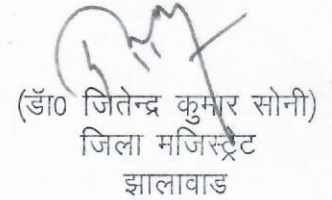 (डॉ0 जितेन्द्र कुमार सोनी)
जिला मजिस्ट्रेट
झालावाड